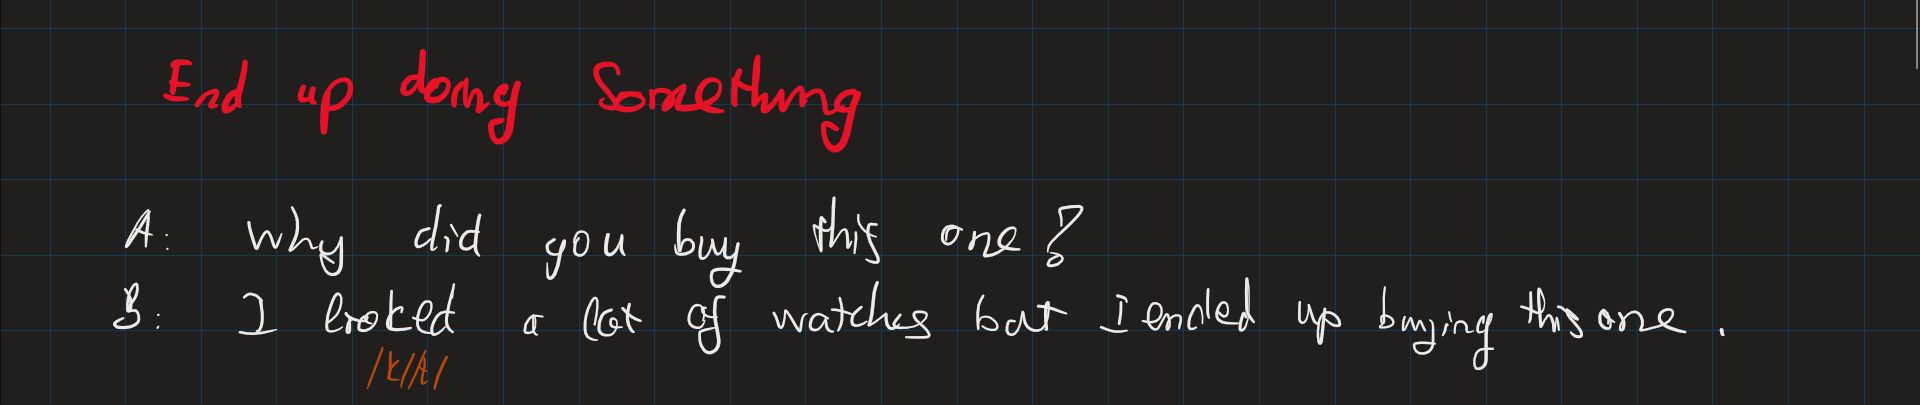 End up doing Something
A: Why did you buy this one?
B: I looked a lot of watches but I ended up buying this one.
/k//t/